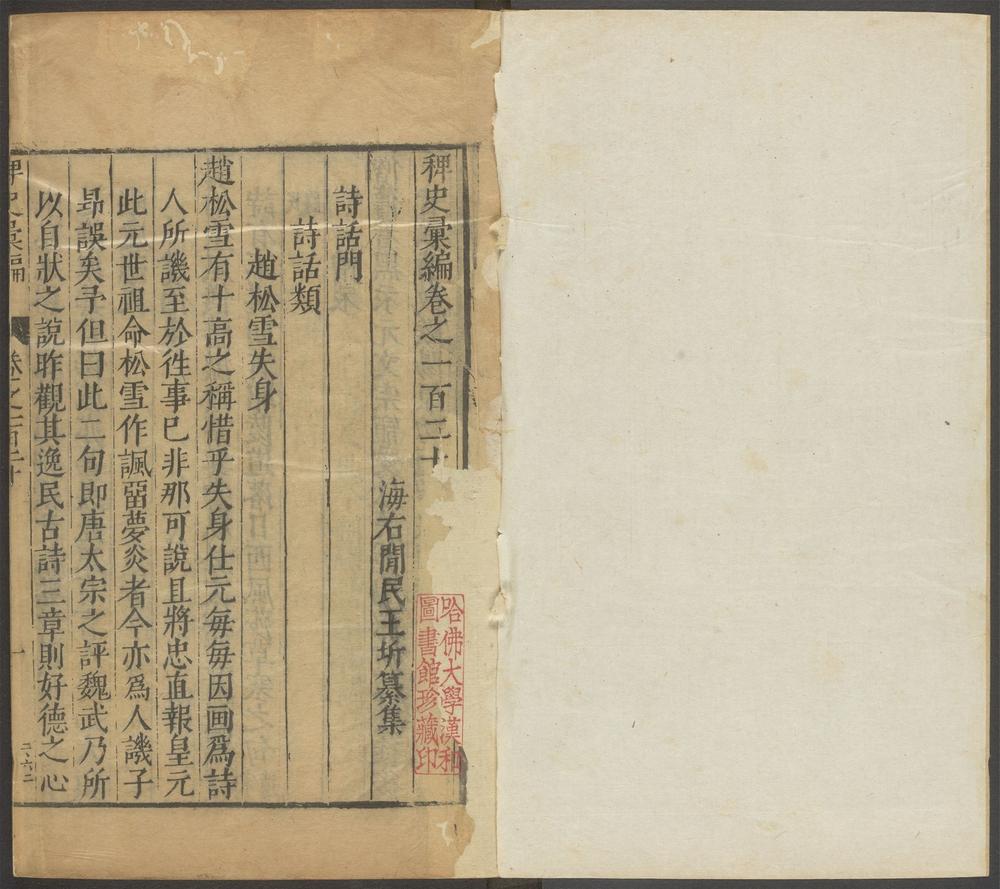 稗史彙編卷之一百二十
海右閒民王圻纂集
詩話門
詩話類
趙松雪失身
趙松雪有十高之稱惜乎失身仕元每每因画爲詩
人所譏至於徃事已非那可說且將忠直報皇元
此元世祖命松雪作諷畱夢炎者今亦爲人譏子
昻誤矣予但曰此二句即唐太宗之評魏武乃所
以自狀之說昨觀其逸民古詩三章則好德之心
稗史彙編
卷之一百二十
一
哈佛大學漢和
圖書館珍藏印